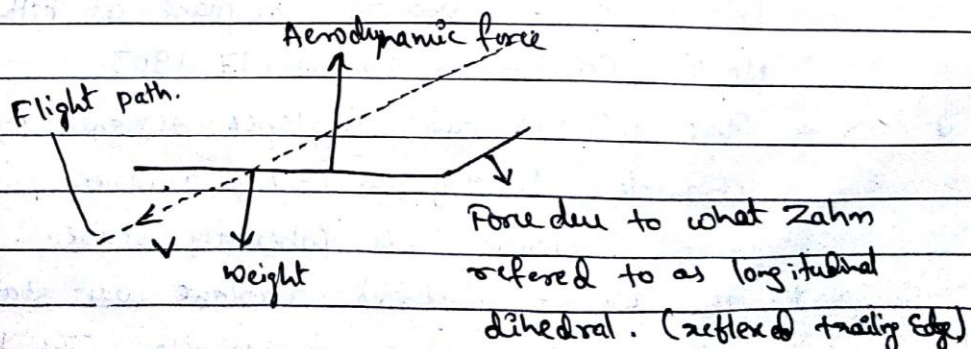 Aerodynamic force
Flight path.
V
Weight
Force due to what Zahm
refered to as longitudinal
dihedral. (reflexed trailing Edge)